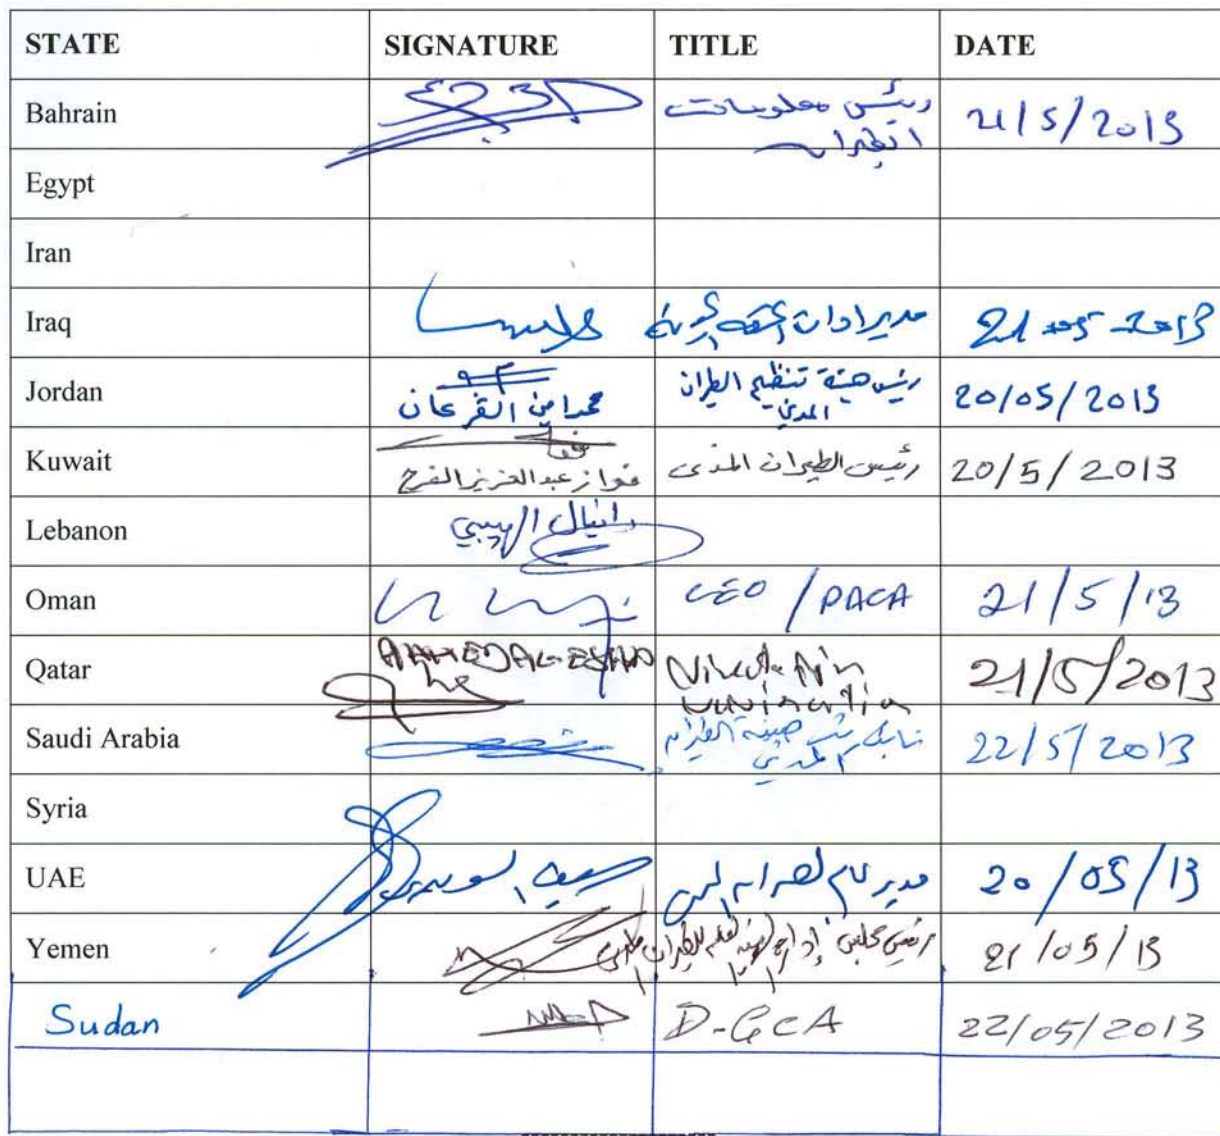 STATE SIGNATURE TITLE DATE
Bahrain رئيس معلومات 21/5/2013
الطيران
Egypt
Iran
Iraq مدير 21-05-2013
Jordan محمد امين القرعان رئيس هيئة تنظيم الطيران المدني 20/05/2013
Kuwait فواز عبدالعزيز الفرح رئيس الطيران المدني 20/5/2013
Lebanon دانيال الهيبي
Oman CEO/PACA 21/5/13
Qatar 21/5/2013
Saudi Arabia نائب رئيس هيئة الطيران المدني 22/5/2013
Syria
UAE سيف السويدي مدير عام 20/05/13
Yemen رئيس مجلس إدارة 21/05/13
Sudan D-GCA 22/05/2013